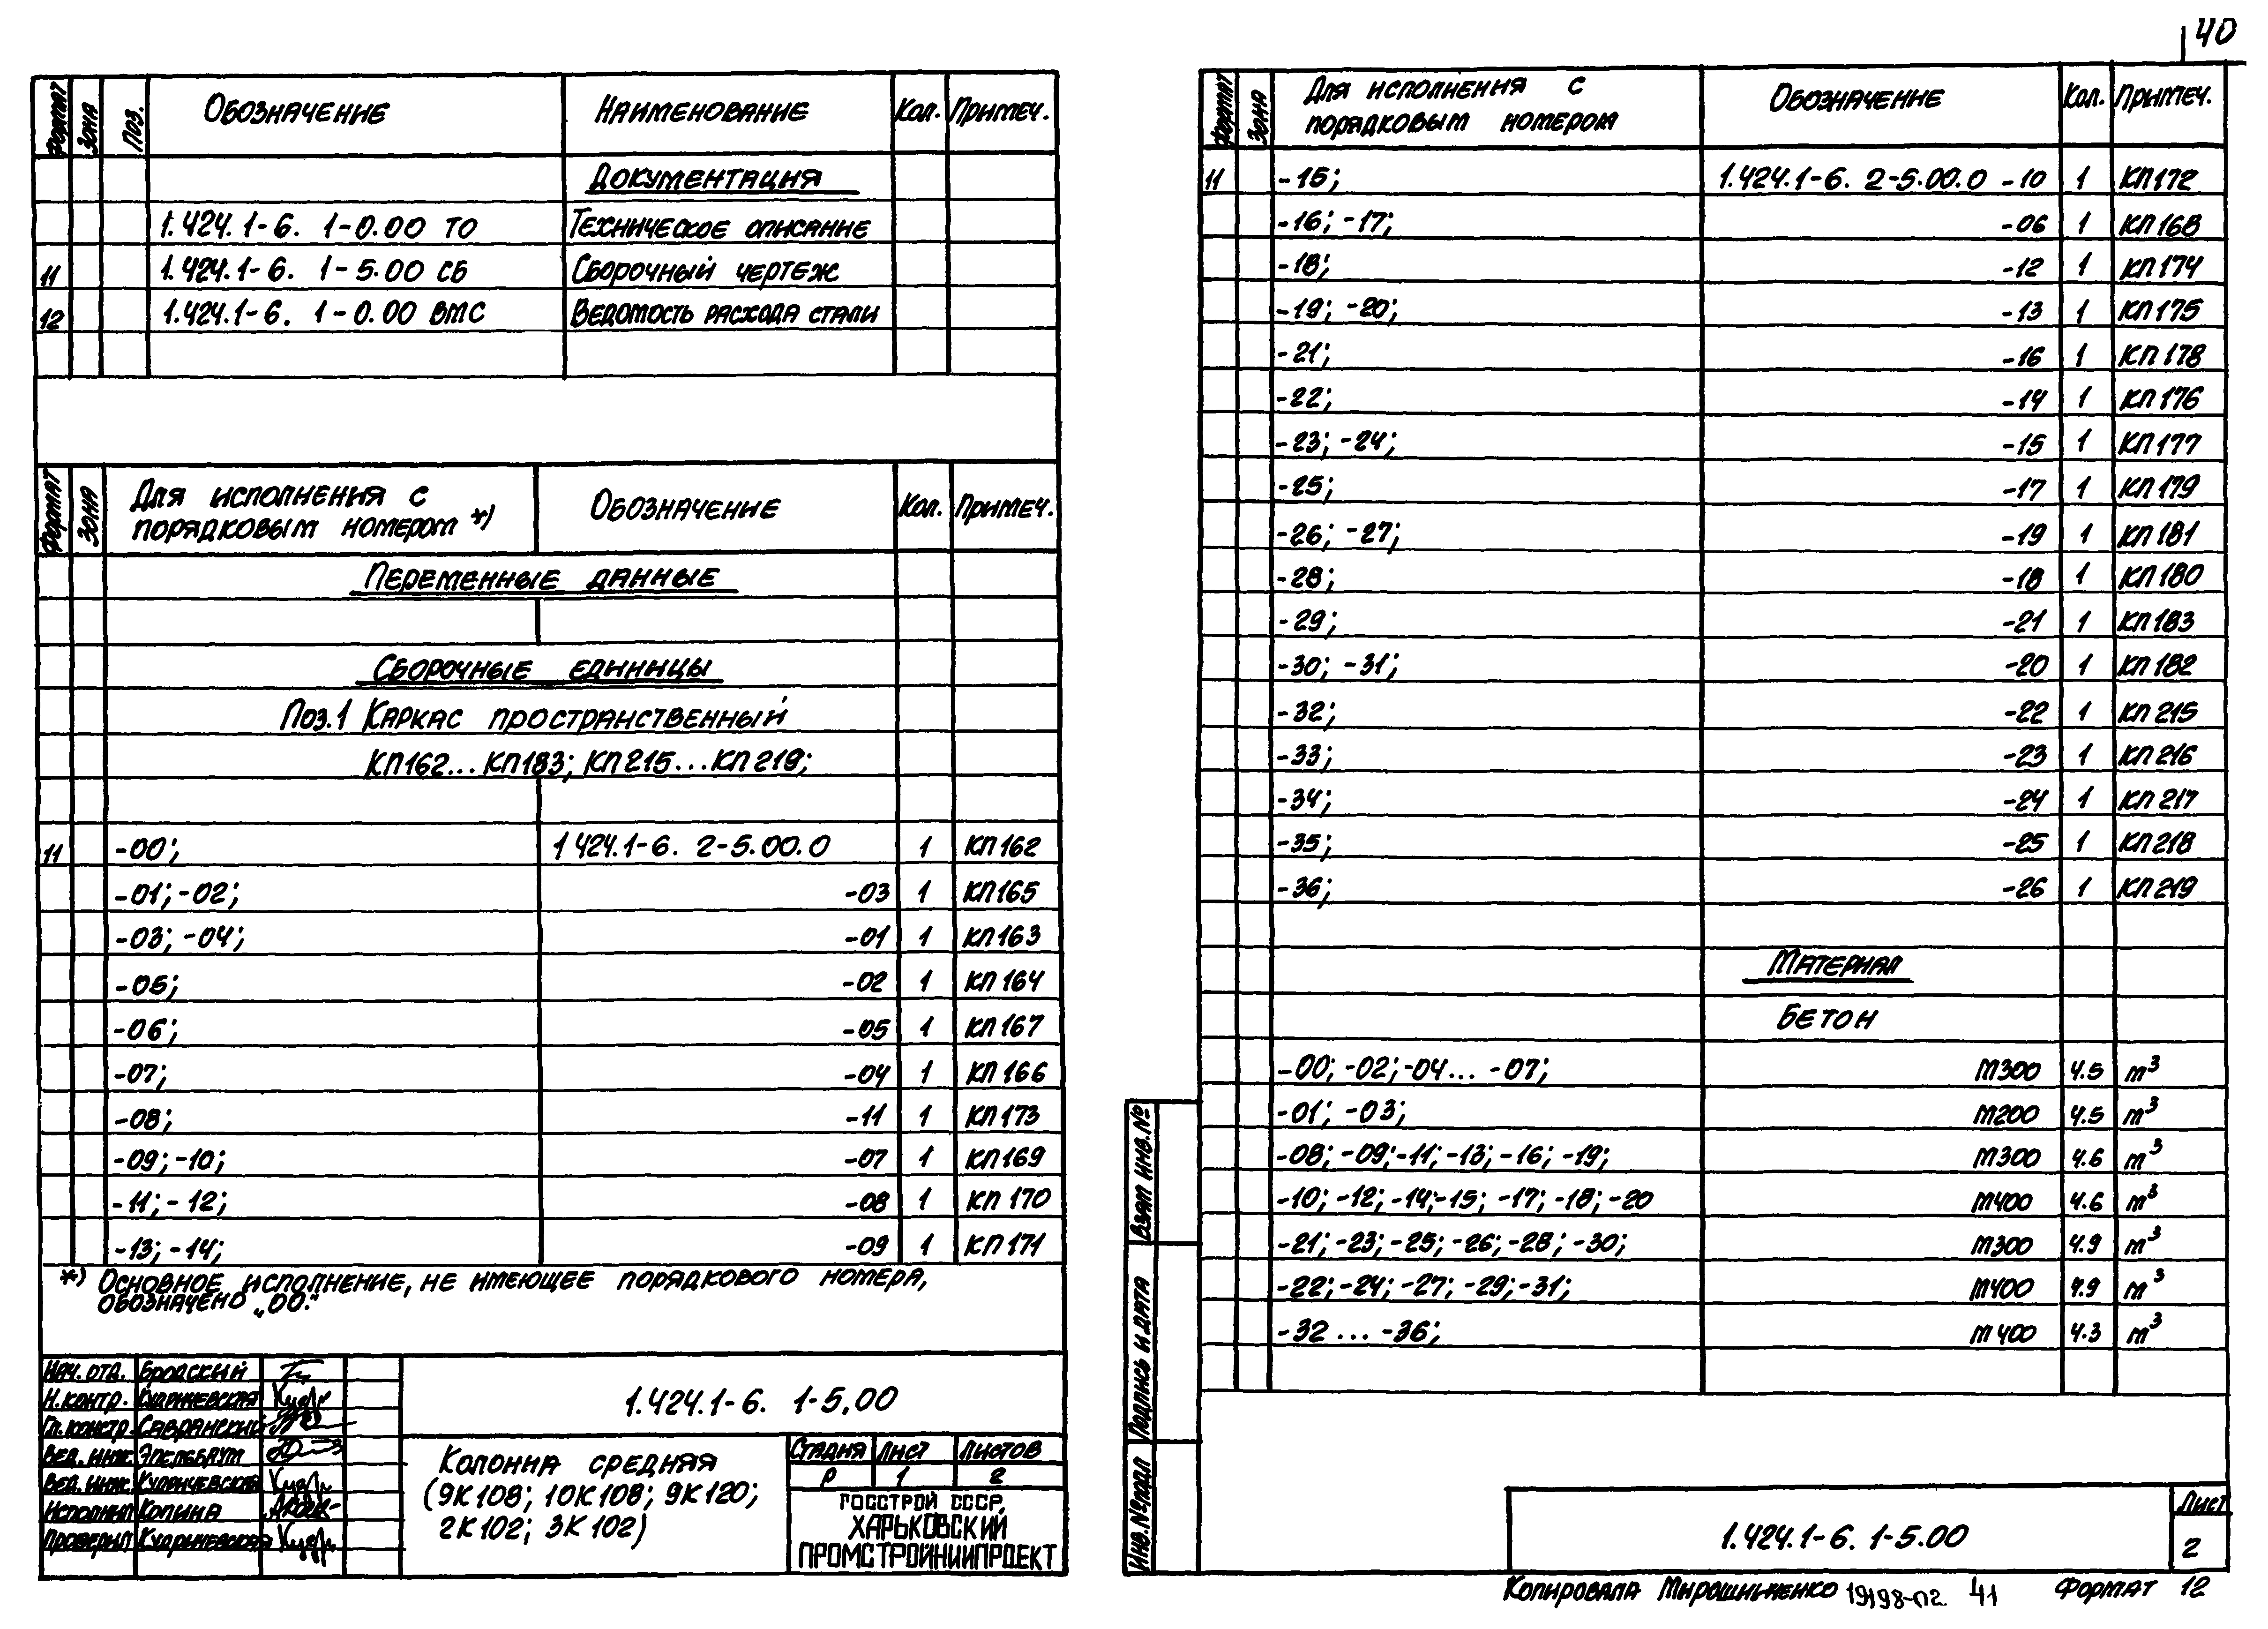 40
Формат Зона Поз. Обозначение Наименование Кол. Примеч.
Документация
1.424.1-6. 1-0.00 ТО Техническое описание
11 1.424.1-6. 1-5.00 СБ Сборочный чертеж
12 1.424.1-6. 1-0.00 ВМС Ведомость расхода стали
Формат Зона Для исполнения с порядковым номером *) Обозначение Кол. Примеч.
Переменные данные
Сборочные единицы
Поз.1 Каркас пространственный
КП162...КП183; КП215...КП219;
11 -00; 1 424.1-6. 2-5.00.0 1 КП162
-01; -02; -03 1 КП165
-03; -04; -01 1 КП163
-05; -02 1 КП164
-06; -05 1 КП167
-07; -04 1 КП166
-08; -11 1 КП173
-09; -10; -07 1 КП169
-11; -12; -08 1 КП170
-13; -14; -09 1 КП171
*) Основное исполнение, не имеющее порядкового номера,
обозначено „00."
Нач. отд. Бродский
Н.контр. Кудричевская
Гл.констр. Савранский
Вед. инж.
Вед. инж. Кудричевская
Исполнил Копина
Проверил Кудричевская
1.424.1-6. 1-5.00
Колонна средняя
(9К108; 10К108; 9К120;
2К102; 3К102)
Стадия Лист Листов
Р 1 2
Госстрой СССР
ХАРЬКОВСКИЙ
ПРОМСТРОЙНИИПРОЕКТ
Формат Зона Для исполнения с порядковым номером Обозначение Кол. Примеч.
11 -15; 1.424.1-6. 2-5.00.0 -10 1 КП172
-16; -17; -06 1 КП168
-18; -12 1 КП174
-19; -20; -13 1 КП175
-21; -16 1 КП178
-22; -14 1 КП176
-23; -24; -15 1 КП177
-25; -17 1 КП179
-26; -27; -19 1 КП181
-28; -18 1 КП180
-29; -21 1 КП183
-30; -31; -20 1 КП182
-32; -22 1 КП215
-33; -23 1 КП216
-34; -24 1 КП217
-35; -25 1 КП218
-36; -26 1 КП219
Материал
Бетон
-00; -02; -04... -07; М300 4.5 м³
-01; -03; М200 4.5 м³
-08; -09; -11; -13; -16; -19; М300 4.6 м³
-10; -12; -14; -15; -17; -18; -20 М400 4.6 м³
-21; -23; -25; -26; -28; -30; М300 4.9 м³
-22; -24; -27; -29; -31; М400 4.9 м³
-32 ... -36; М400 4.3 м³
Взам инв.№
Подпись и дата
Инв.№подл
1.424.1-6. 1-5.00
Лист
2
Копировала Мирошниченко 19198-02. 41 Формат 12